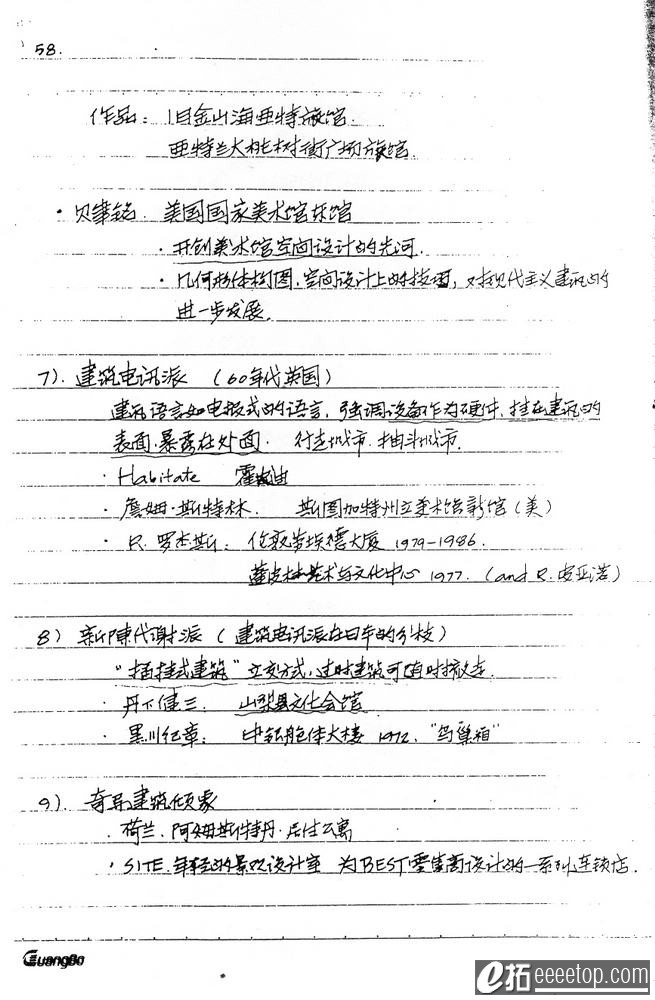 58.
作品：旧金山海亚特旅馆.
亚特兰大桃树街广场旅馆.
·贝聿铭. 美国国家美术馆东馆
·开创美术馆空间设计的先河.
·几何形体构图,空间设计上的技巧,对现代主义建筑的
进一步发展.
7). 建筑电讯派 (60年代英国)
建筑语言如电报式的语言, 强调设备作为硬件, 挂在建筑的
表面,暴露在外面. 行走城市. 抽斗城市.
·Habitate
·詹姆·斯特林. 斯图加特州立美术馆新馆(美)
·R. 罗杰斯: 伦敦劳埃德大厦 1979-1986.
蓬皮杜艺术与文化中心 1977. (and R.皮亚诺)
8) 新陈代谢派 (建筑电讯派在日本的分枝)
"插挂式建筑"立交方式,过时建筑可随时撤去.
·丹下健三. 山梨县文化会馆
·黑川纪章: 中银舱体大楼 1972. "鸟巢箱"
9). 奇异建筑倾象
·荷兰.阿姆斯特丹.居住公寓
·SITE.年轻的景观设计室 为BEST零售商设计的一系列连锁店.
GuangBo
e拓 eeeetop.com